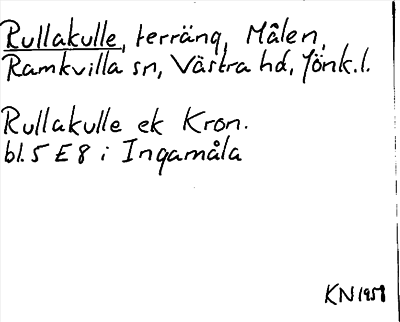 Rullakulle, terräng, Målen,
Ramkvilla sn, Västra hd, Jönk.l.
Rullakulle ek Kron.
bl.5 E 8 i Ingamåla
KN 1958